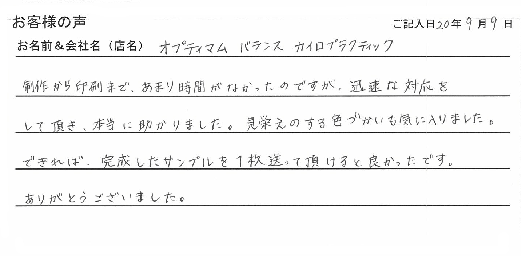 お客様の声
ご記入日20年9月9日
お名前&会社名（店名） オプティマム バランス カイロプラクティック
制作から印刷まで、あまり時間がなかったのですが、迅速な対応を
して頂き、本当に助かりました。見栄えのする色づかいも気に入りました。
できれば、完成したサンプルを1枚送って頂けると良かったです。
ありがとうございました。